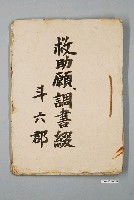 救助願調書綴
斗六郡